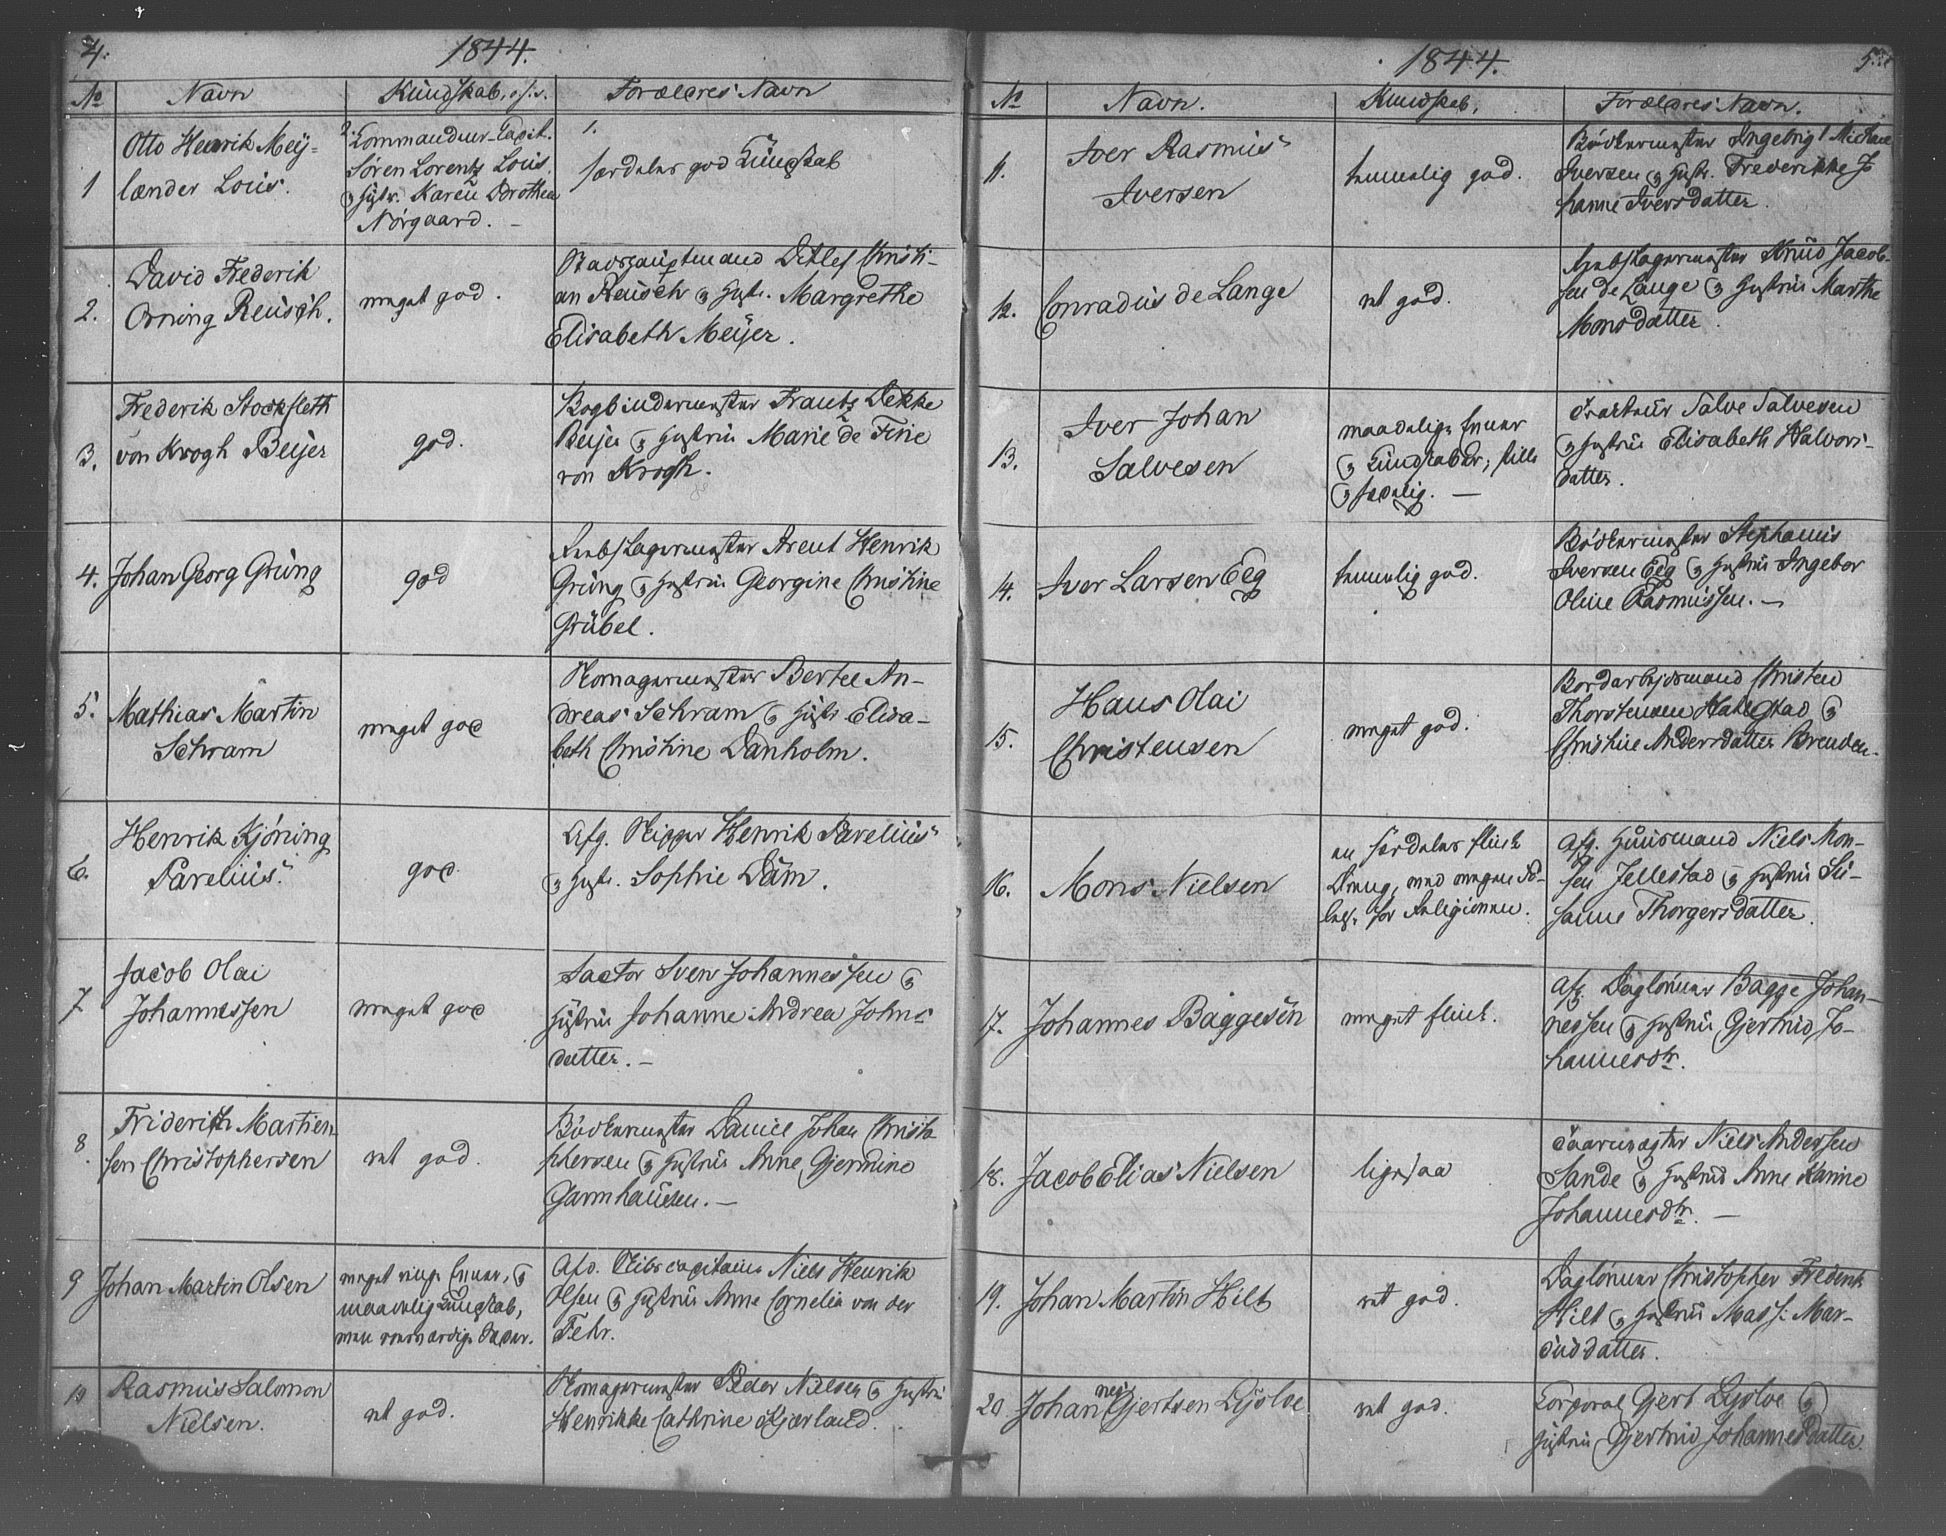 4.
1844.
No Navn Kundskab, o:s:v. Forældres Navn
1
Otto Henrik Mey-
lænder Louis.
2. Commandeur-Capit.
Sören Lorentz Louis
& Hustr. Karen Dorothea
Nørgaard. –
1.
særdeles god Kundskab
2.
David Frederik
Orning Reusch.
meget god.
Stadshauptmand Ditlef Christi-
an Reusch & Hustr. Margrethe
Elisabeth Meijer.
3.
Frederik Stockfleth
von Krogh Beijer
god.
Bogbindermester Frantz Dekke
Beijer & Hustrue Marie de Fine
von Krogh.
4.
Johan Georg Grüng
god
Arent Henrik
Grüng & Hustrue Georgine Christine
Grübel.
5.
Mathias Martin
Schram
meget god
Skomagermester Bertel An-
dreas Schram & Hustr Elisa-
beth Christine Danholm.
6.
Henrik Kjöning
Parelius.
god.
Afg. Skipper Henrik Parelius
& Hustr. Sophie Dam.
7
Jacob Olai
Johannessen
meget god
Sven Johannessen &
Hustrue Johanne Andrea Johns-
datter. –
8.
Friderich Martien-
sen Christophersen
ret god.
Bödkermester Daniel Johan Christo-
phersen & Hustrue Anne Gjermine
Garmhausen. –
9
Johan Martin Olsen
meget ringe Evner, &
maadelig Kundskab,
men
Afd. Skibscapitaine Niels Henrik
Olsen & Hustrue Anne Cornelia von der
Fehr.
10
Rasmus Salomon
Nielsen.
ret god.
Skomagermester Peder Nielsen & Hustrue
Henrikke Cathrine Kjærland.
1844.
5.
No Navn. Kundskab. Forældres Navn.
11.
Iver Rasmus
Iversen
temmelig god.
Bödkermester Ingebrigt Michael
Iversen & Hustr. Frederikke Jo
hanne Iversdatter.
12.
Conradus de Lange
ret god.
Knud Jacob-
sen de Lange & Hustrue Marthe
Monsdatter.
13.
Iver Johan
Salvesen
maadelige Evner
& Kundskaber, stille
& sædelig. –
Salve Salvesen
& Hustrue Elisabeth Halvors-
datter.
14.
Iver Larsen Eeg
temmelig god.
Bödkermester Stephanus
Iversen Eeg & Hustrue Ingebor
Oline Rasmussen. –
15.
Hans Olai
Christensen
meget god.
Bordarbejdsmand Christen
Thorstensen &
Christine Andersdatter
16.
Mons Nielsen
en særdeles flink
Dreng, med megen Fö-
lelse for Religionen.
Afg. Huusmand Niels Mon-
sen Jellestad & Hustrue Su-
sanne Thorgersdatter.
17.
Johannes Baggesen
meget flink.
Afg. Daglönner Bagge Johan-
nessen & Hustrue Gjertrud Jo-
hannesdtr.
18.
Jacob Elias Nielsen
ligesaa
Niels Andersen
Sande & Hustrue Anne Karine
Johannesdtr. –
19.
Johan Martin Hilt
ret god.
Daglönner Christopher Frederik
Hilt & Hustrue Mar-
cusdatter.
20.
nes
Johan Gjertsen Lysloe
ret god.
Corporal Gjert Lysloe &
Hustrue Gjertrud Johannesdatter.